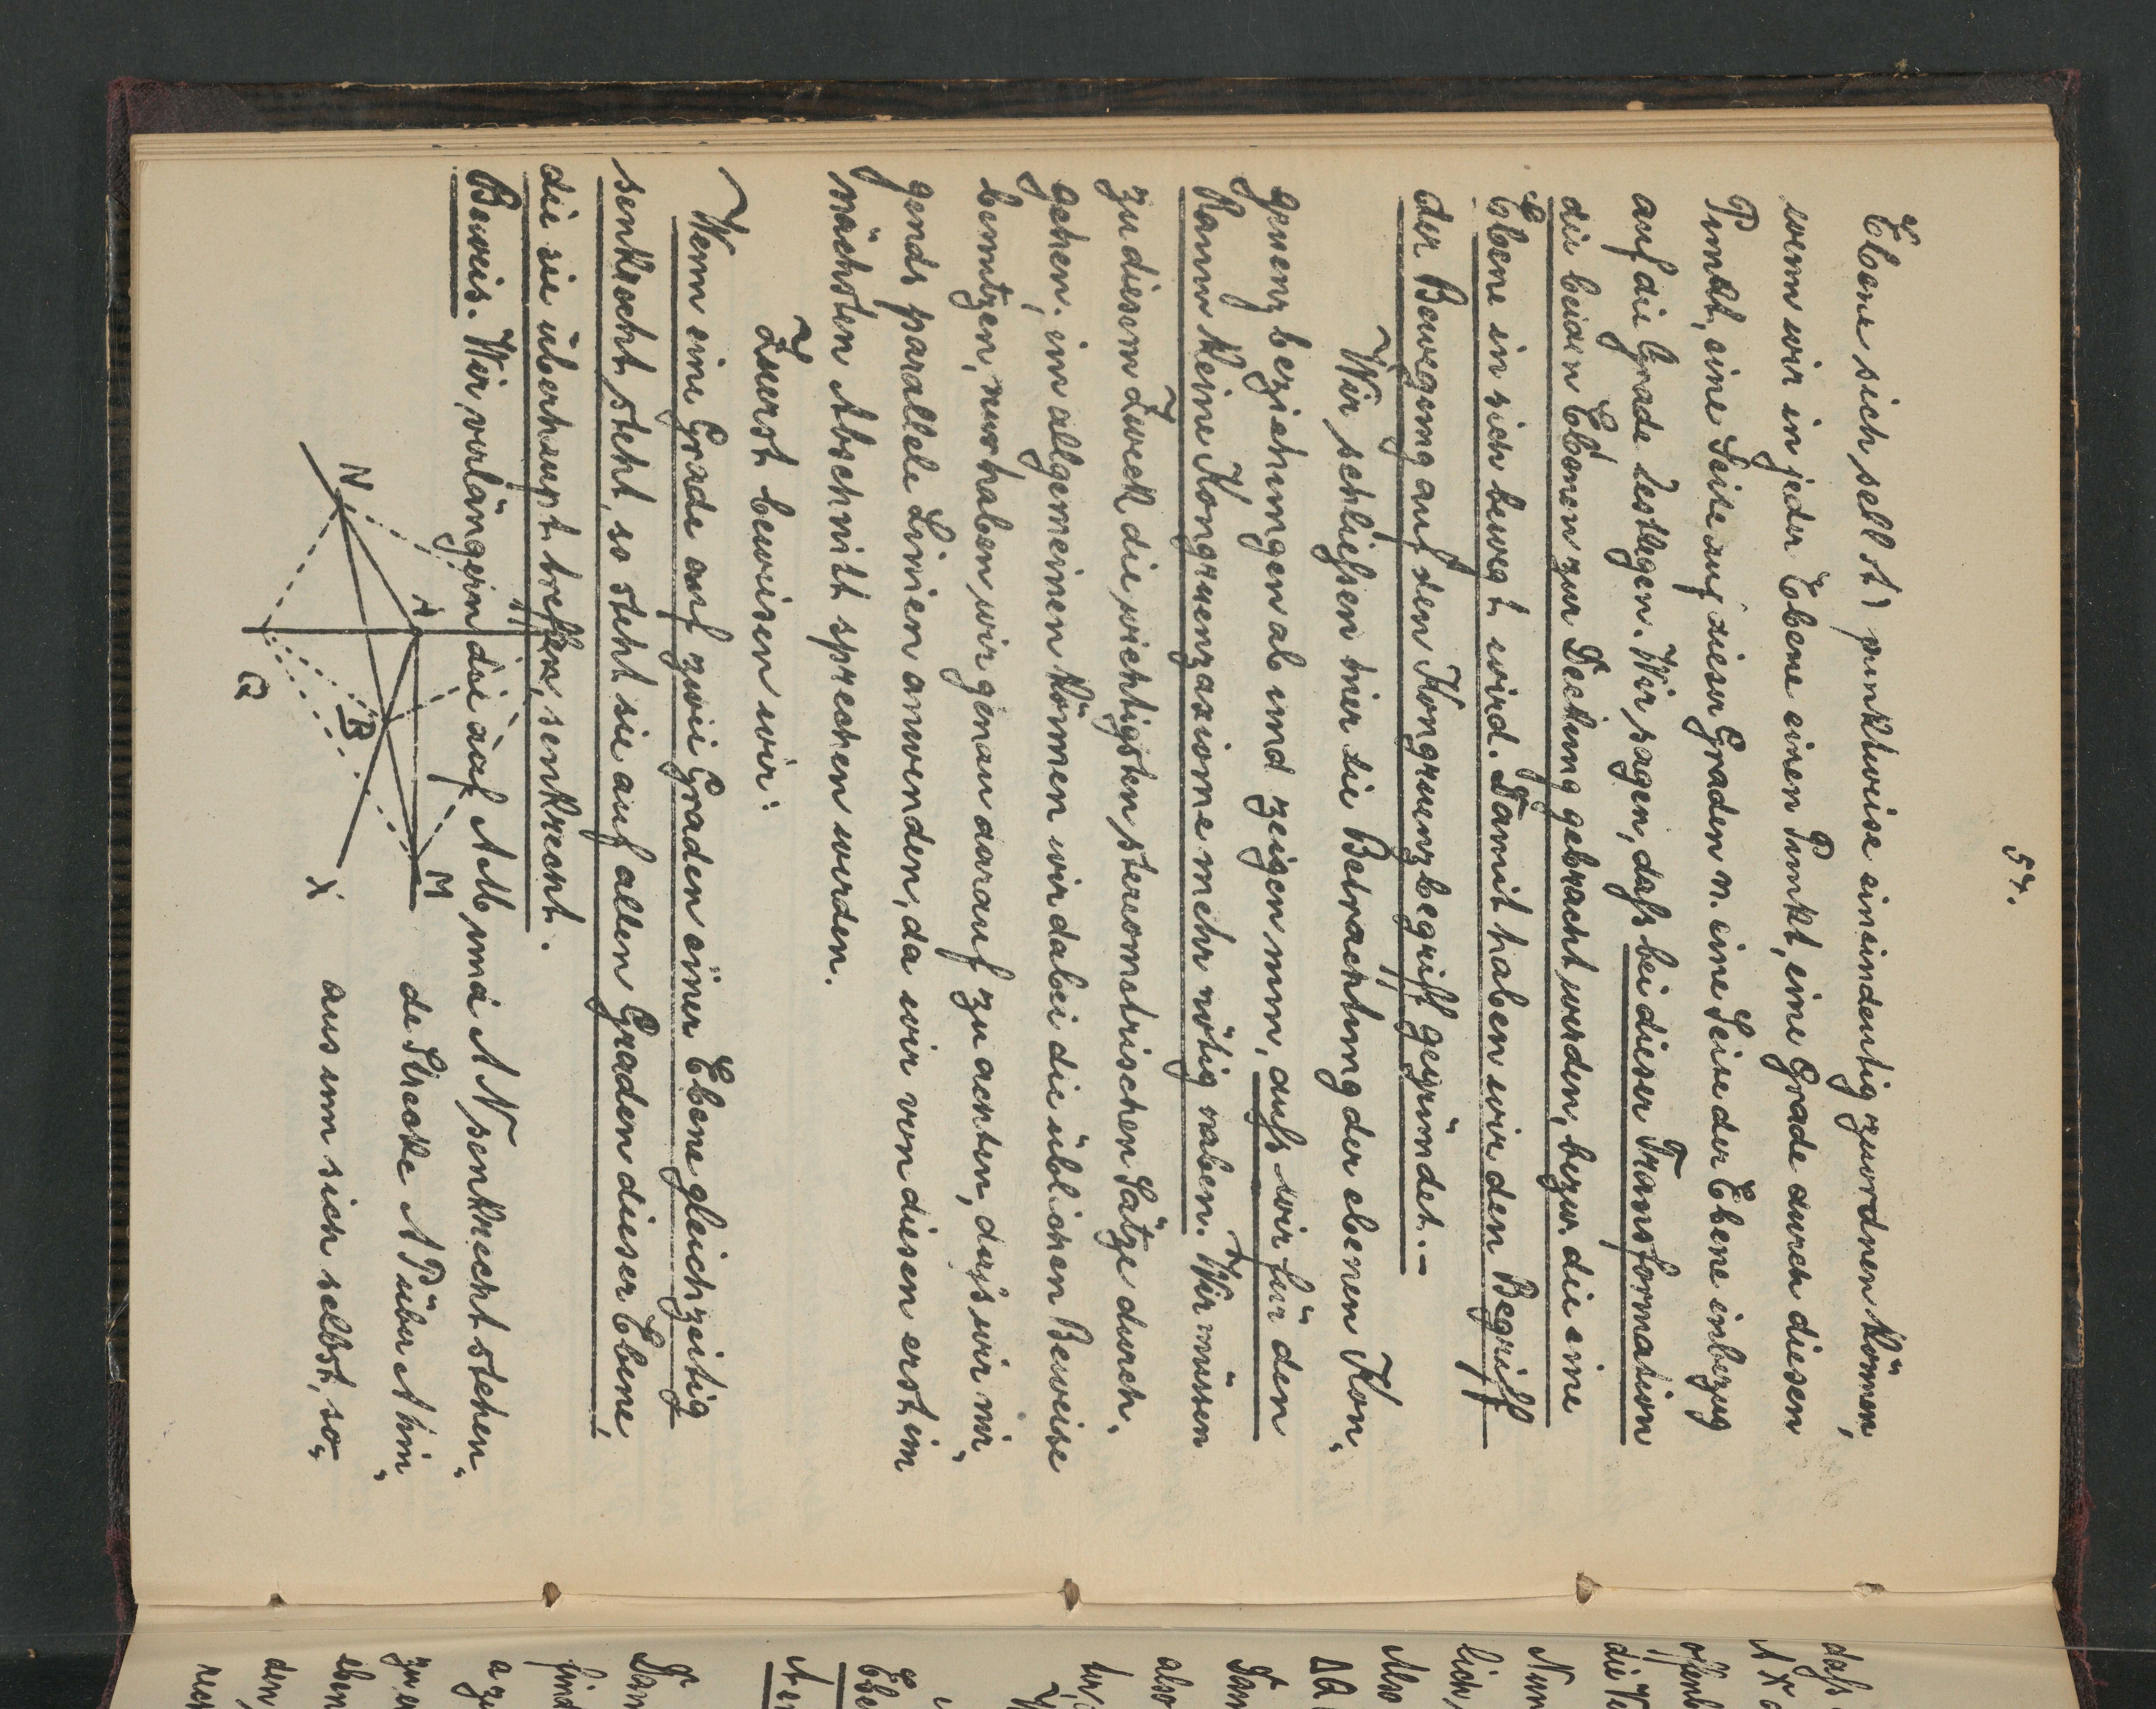 57.
Ebene sich selbst) punktweise eineindeutig zuordnen können,
wenn wir in jeder Ebene einen Punkt, eine Grade durch diesen
Punkt, eine Seite auf dieser Graden u. eine Seite der Ebene inbezug
auf die Grade festlegen. Wir sagen, daß bei dieser Transformation
die beiden Ebenen zur Deckung gebracht werden, bezw. die eine
Ebene in sich bewegt wird. Damit haben wir den Begriff
der Bewegung auf den Kongruenzbegriff gegründet. –
Wir schließen hier die Betrachtung der ebenen Kon-
gruenzbeziehungen ab und zeigen nun, daß wir für den
Raum keine Kongruenzaxiome mehr nötig haben. Wir müssen
zu diesem Zweck die wichtigsten stereometrischen Sätze durch-
gehen; im allgemeinen können wir dabei die üblichen Beweise
benutzen, nur haben wir genau darauf zu achten, daß wir nir-
gends parallele Linien anwenden, da wir von diesen erst im
nächsten Abschnitt sprechen werden.
Zuerst beweisen wir:
Wenn eine Grade auf zwei Graden einer Ebene gleichzeitig
senkrecht steht, so steht sie auf allen Graden dieser Ebene,
die sie überhaupt treffen, senkrecht.
Beweis. Wir verlängern die auf AM und AN senkrecht stehen-
de Strecke AP über A hin-
aus um sich selbst, so-
N
A
M
B
Q
X
daß
AX
offenb
die
Nun
lich
Also
ΔQ
Dann
also
Ebe
Dan
find
a zu
zu
eben
den,